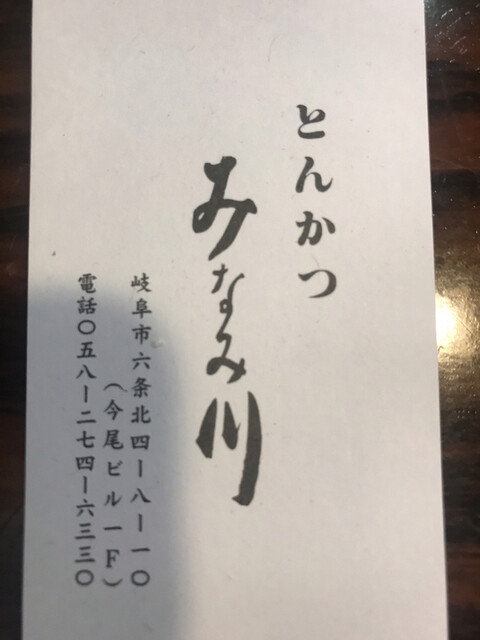 とんかつ
みなみ川
岐阜市六条北四ー八ー一〇
（今尾ビル一F）
電話〇五八ー二七四ー六三三〇